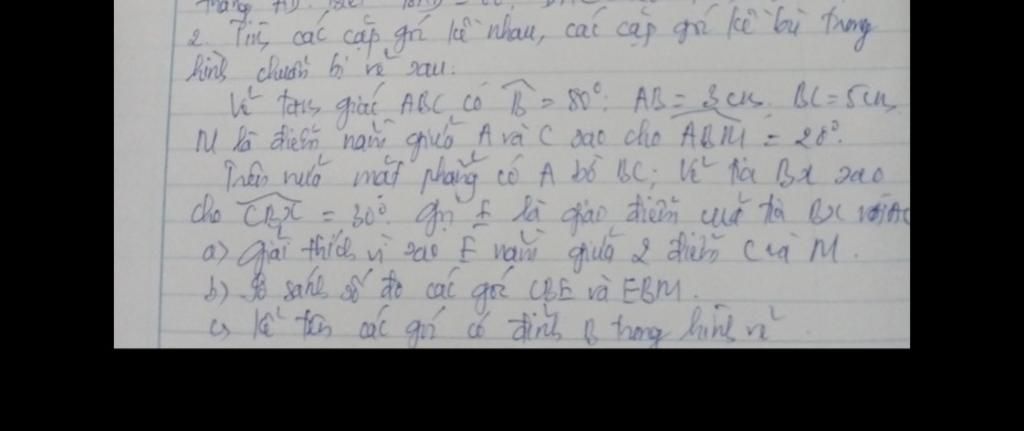 2. Tìm các cặp góc kề nhau, các cặp góc kề bù trong
hình chuẩn bị vẽ sau:
Vẽ tam giác ABC có B̂ = 80°; AB = 3cm. BC = 5cm
M là điểm nằm giữa A và C sao cho ABM = 20°.
Trên nửa mặt phẳng có A bờ BC; Vẽ tia Bx sao
cho CBx = 30°. Gọi E là giao điểm của tia Bx với AC
a) Giải thích vì sao E nằm giữa 2 điểm C và M.
b) So sánh số đo các góc CBE và EBM.
c) Kể tên các góc có đỉnh B trong hình vẽ